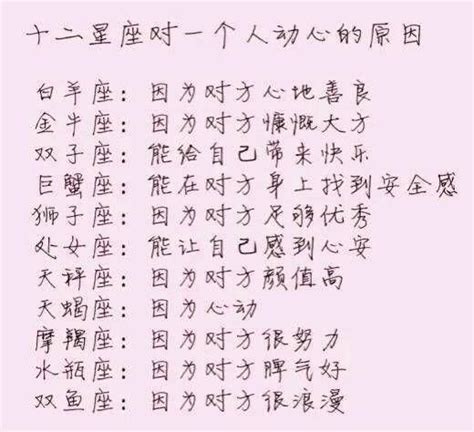 十二星座对一个人动心的原因
白羊座：因为对方心地善良
金牛座：因为对方慷慨大方
双子座：能给自己带来快乐
巨蟹座：能在对方身上找到安全感
狮子座：因为对方足够优秀
处女座：能让自己感到心安
天秤座：因为对方颜值高
天蝎座：因为心动
摩羯座：因为对方很努力
水瓶座：因为对方脾气好
双鱼座：因为对方很浪漫